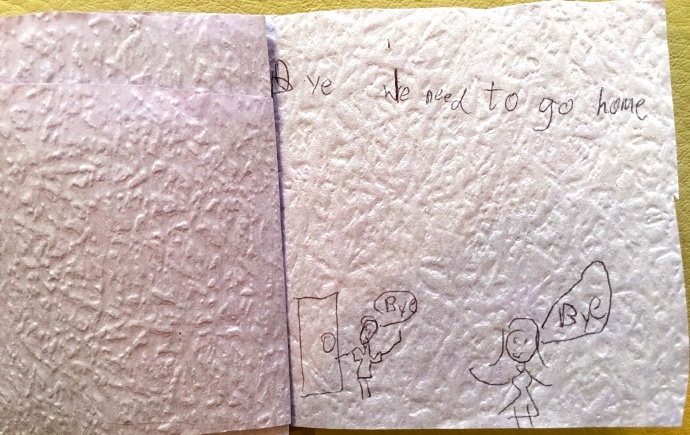 Bye we need to go home
Bye
Bye